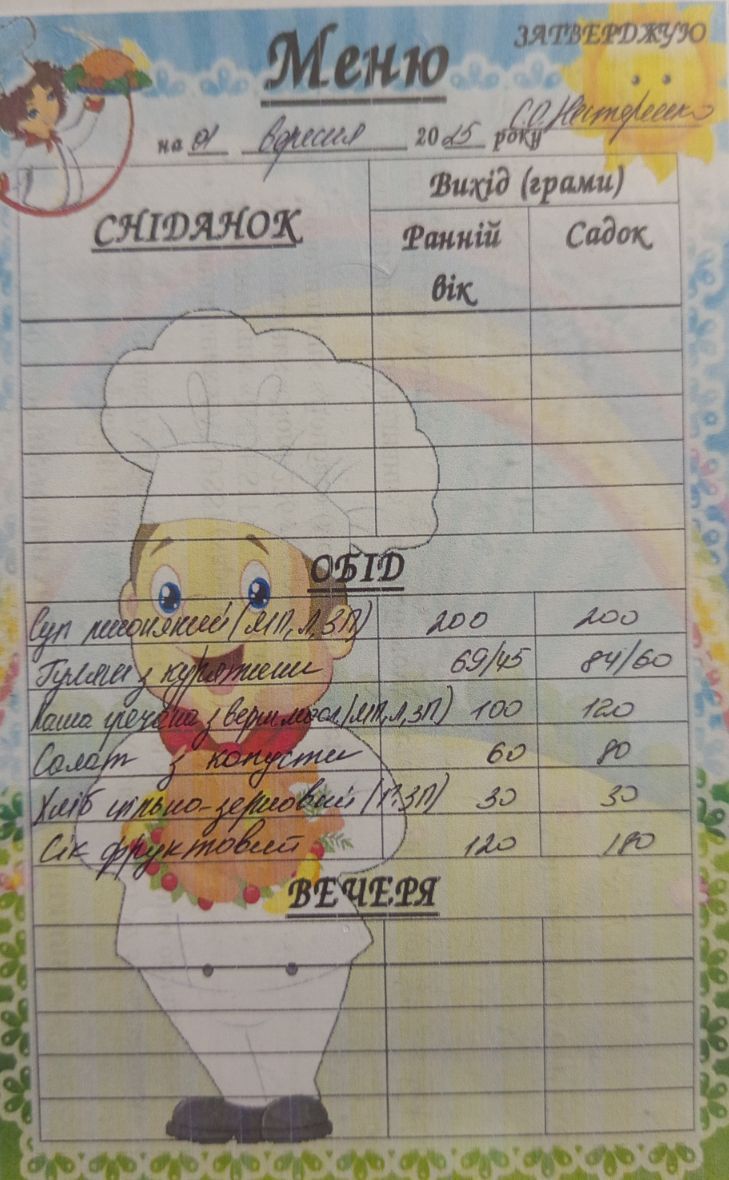 ЗАТВЕРДЖУЮ
Меню
С.О. Нестеренко
на 01 вересня 2025 року
СНІДАНОК
Вихід (грами)
Ранній вік
Садок
ОБІД
Суп пшоняний (МП, Л, ЗП) 200 200
Гуляш з курятини 69/45 84/60
Каша гречана з верш маслом (МП, Л, ЗП) 100 120
Салат з капусти 60 80
Хліб цільно-зерновий (Г, ЗП) 30 30
Сік фруктовий 120 180
ВЕЧЕРЯ